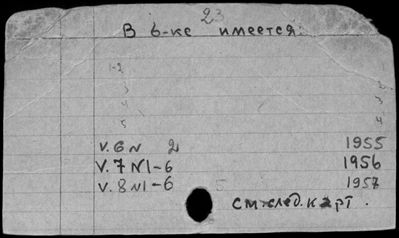 23
В б-ке имеется:
1-2
3
4
5
V. 6 N 2 1955
V. 7 N1-6 1956
V. 8 N1-6 1957
См. след. карт.